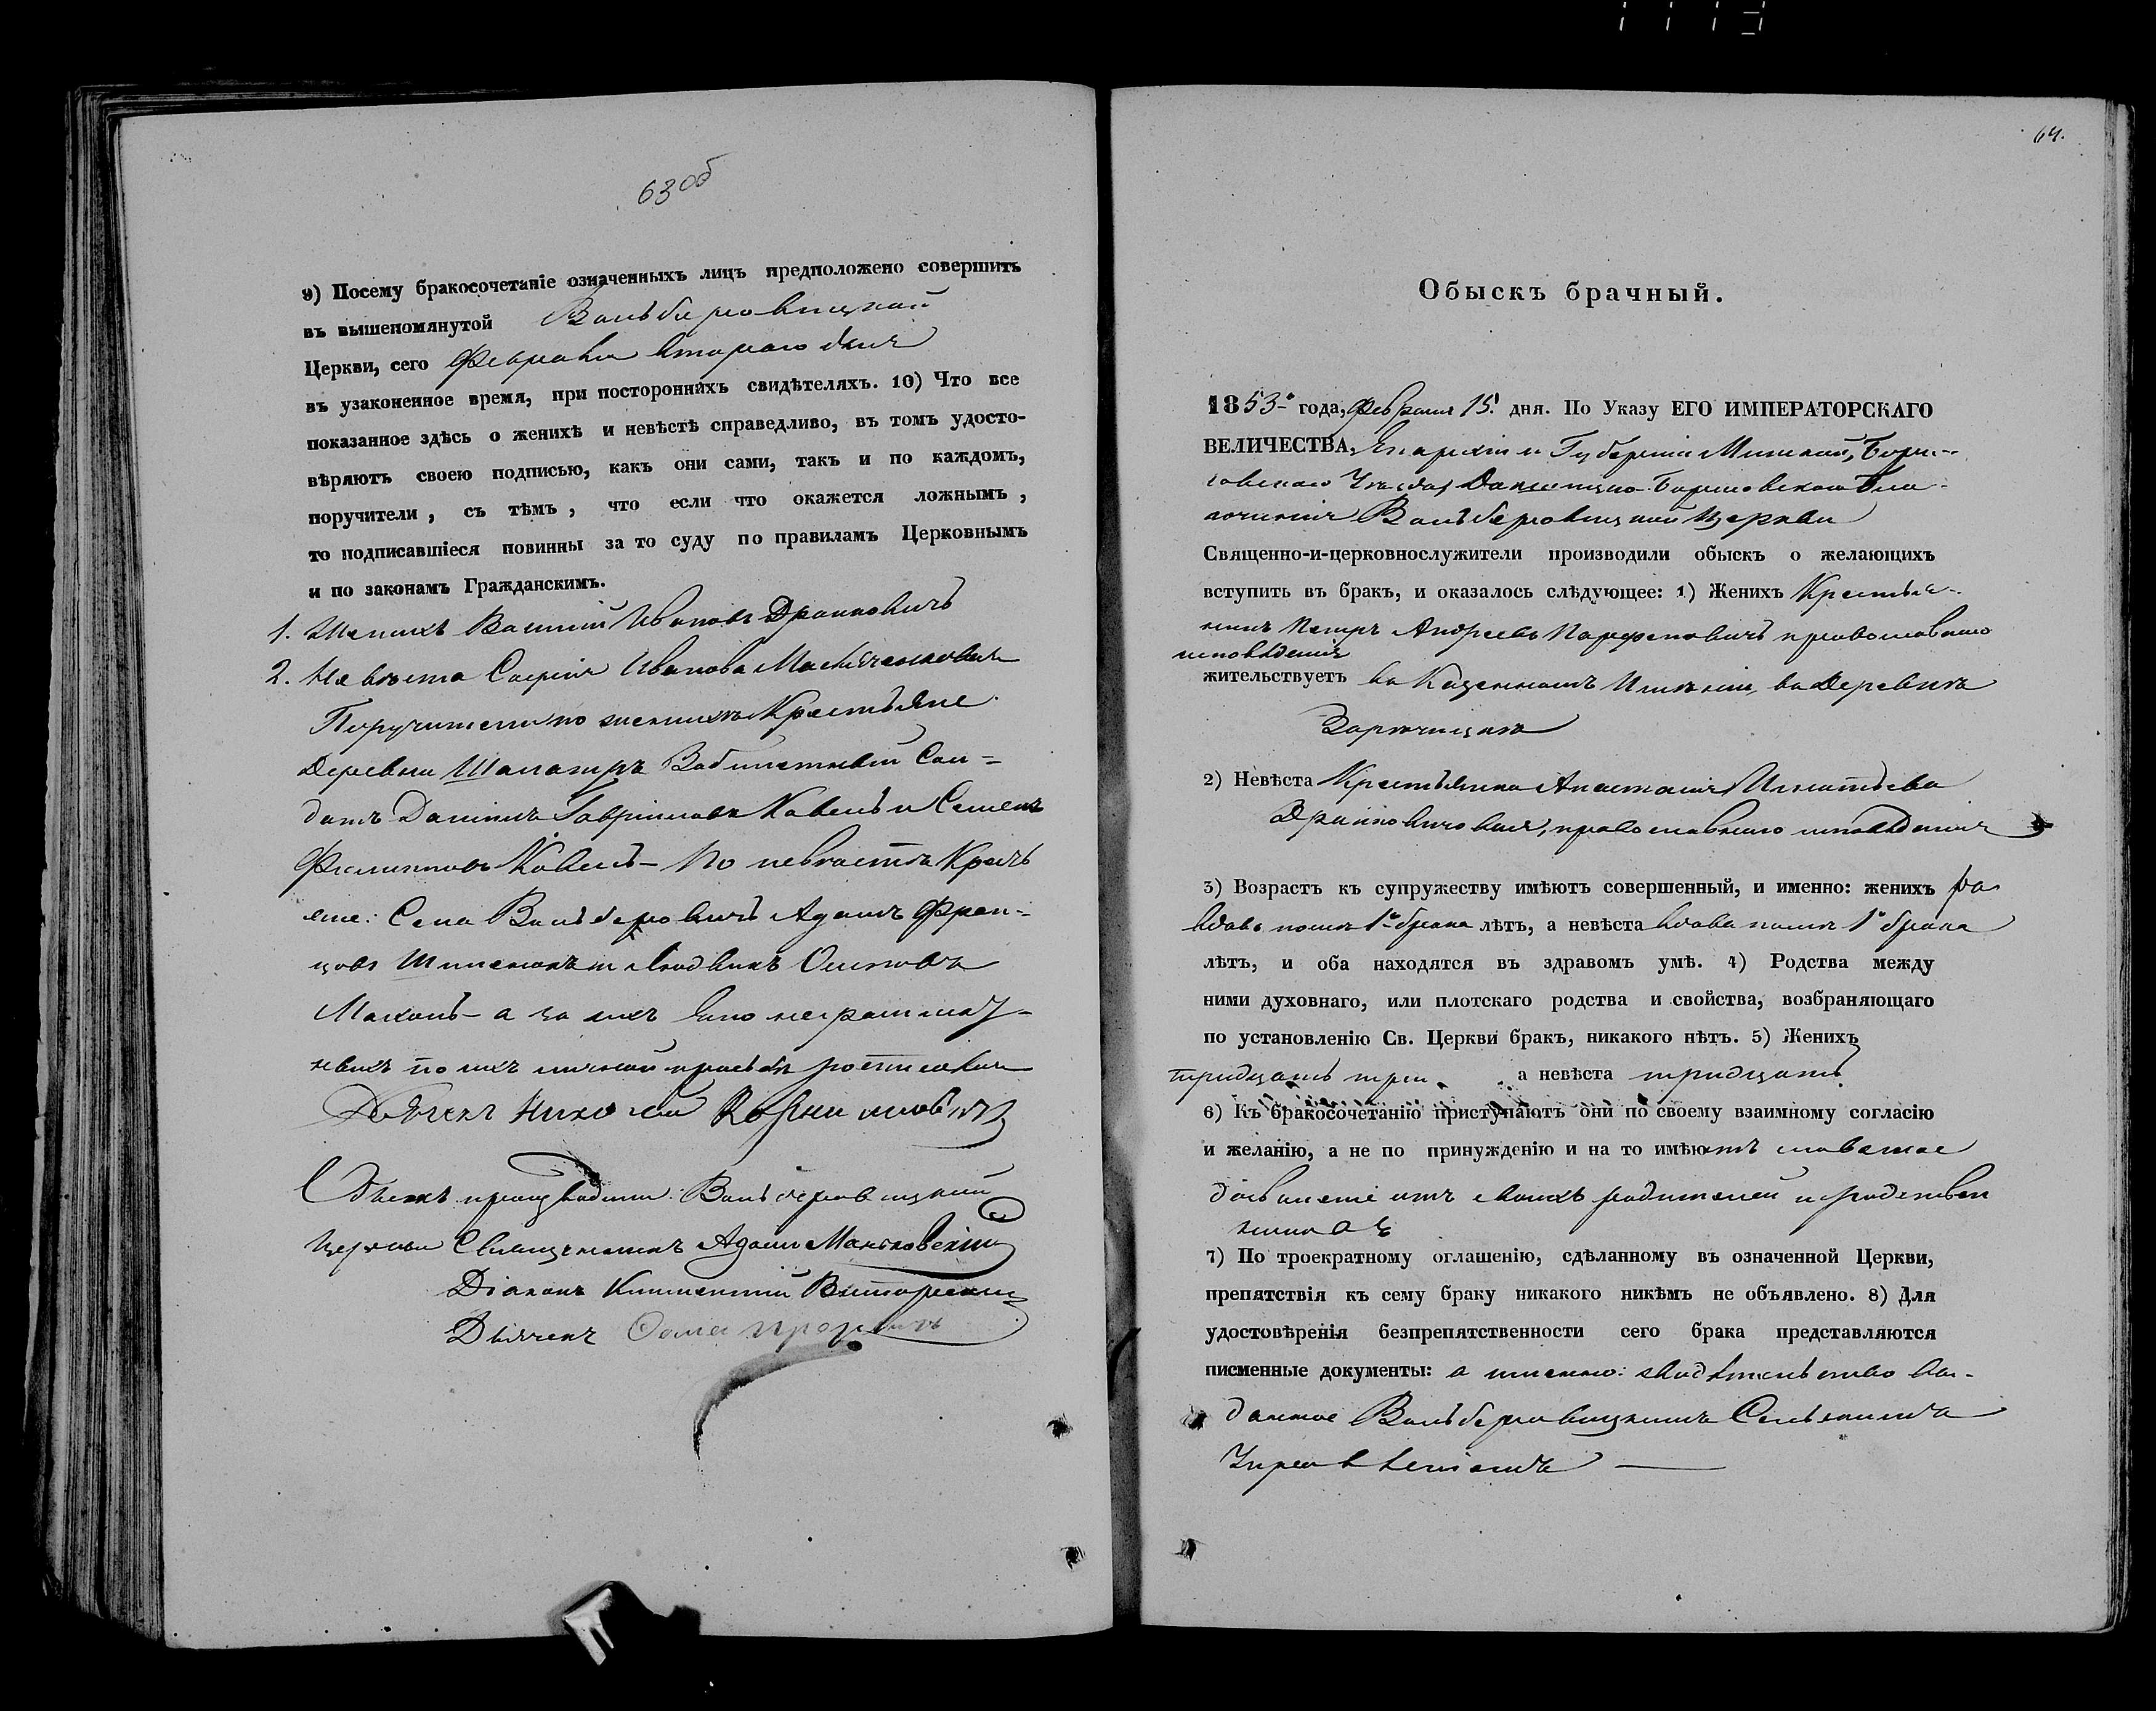 63 об
9) Посему бракосочетаніе означенныхъ лицъ предположено совершить
въ вышепомянутой Вольберовицкой
Церкви, сего Февраля втораго дня
въ узаконенное время, при постороннихъ свидѣтеляхъ. 10) Что все
показанное здѣсь о женихѣ и невѣстѣ справедливо, въ томъ удосто-
вѣряютъ своею подписью, какъ они сами, такъ и по каждомъ,
поручители, съ тѣмъ, что если что окажется ложнымъ,
то подписавшіеся повинны за то суду по правиламъ Церковнымъ
и по законамъ Гражданскимъ.
1. Женихъ Василій Ивановъ Дранковичъ
2. Невѣста Софія Иванова
Поручители по женихѣ Крестьяне
Деревни Шалагиръ Сол=
датъ Даніилъ Гавріиловъ Ковель и Семенъ
Филиповъ Ковель – По невѣстѣ Крестъ
яне: Села Вольберовичъ Адамъ Фран=
цовъ и Людвикъ Осиповъ
– а за ихъ яко неграмот=
ныхъ по ихъ личной прозьбѣ росписался
Дьячекъ Николай
Обыскъ производили: Вольберовицкой
Церкви Священникъ Адамъ Маньковскій
Діаконъ Климентій
Дьячекъ Фома
64.
Обыскъ брачный.
1853-го года, Февраля 15. дня. По Указу ЕГО ИМПЕРАТОРСКАГО
ВЕЛИЧЕСТВА, Епархіи и Губерніи Минской, Бори-
совскаго Уѣзда, Докшицко-Борисовскаго Бла-
гочинія Вольберовицкой Церкви
Священно-и-церковнослужители производили обыскъ о желающихъ
вступить въ бракъ, и оказалось слѣдующее: 1) Женихъ Крестья-
нинъ Петръ Андреевъ Парфеновичъ православнаго
исповѣданія
жительствуетъ въ Казенномъ Имѣніи, въ Деревнѣ
Заречицкѣ
2) Невѣста Крестьянка Анастасія Игнатьева
Дранковичовая, православнаго исповѣданія
3) Возрастъ къ супружеству имѣютъ совершенный, и именно: женихъ
вдовъ послѣ 1го брака лѣтъ, а невѣста вдова послѣ 1го брака
лѣтъ, и оба находятся въ здравомъ умѣ. 4) Родства между
ними духовнаго, или плотскаго родства и свойства, возбраняющаго
по установленію Св. Церкви бракъ, никакого нѣтъ. 5) Женихъ
тридцать три а невѣста тридцать
6) Къ бракосочетанію приступаютъ они по своему взаимному согласію
и желанію, а не по принужденію и на то имѣютъ словесное
дозволеніе отъ своихъ родителей и родствен
никовъ
7) По троекратному оглашенію, сдѣланному въ означенной Церкви,
препятствія къ сему браку никакого никѣмъ не объявлено. 8) Для
удостовѣренія безпрепятственности сего брака представляются
писменные документы: а именно: свидѣтельство вы-
данное Вольберовицкимъ Сельскимъ
Управленіемъ